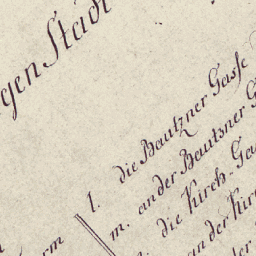 gen Stadt
l. die Bautzner Gasse
m. an der Bautsner G
die Kirch-Ga
an der Kir
der
rm